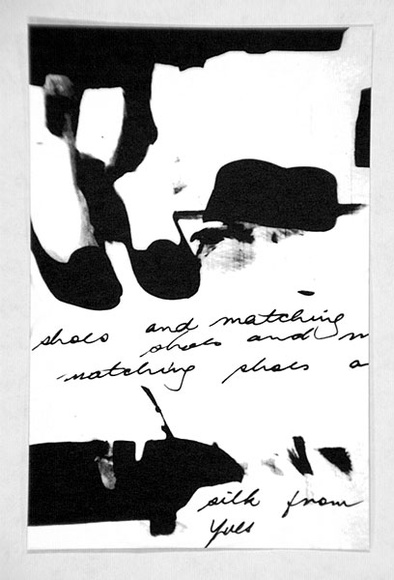 shoes and matching
shoes and m
matching shoes a
silk from
Yves